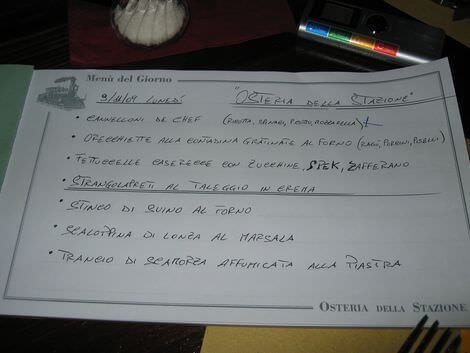 Menù del Giorno
9/11/09 LUNEDÍ "OSTERIA DELLA STAZIONE"
• CANNELLONI DE CHEF (RICOTTA, SPINACI, PESTO, MOZZARELLA)
• ORECCHIETTE ALLA CONTADINA GRATINATE AL FORNO (RAGÙ, PEPERONI, PISELLI)
• FETTUCCELLE CASERECCE CON ZUCCHINE, SPEK, ZAFFERANO
• STRANGOLAPRETI AL TALEGGIO IN CREMA
• STINCO DI SUINO AL FORNO
• SCALOPPINA DI LONZA AL MARSALA
• TRANCIO DI SCAMORZA AFFUMICATA ALLA PIASTRA
OSTERIA DELLA STAZIONE